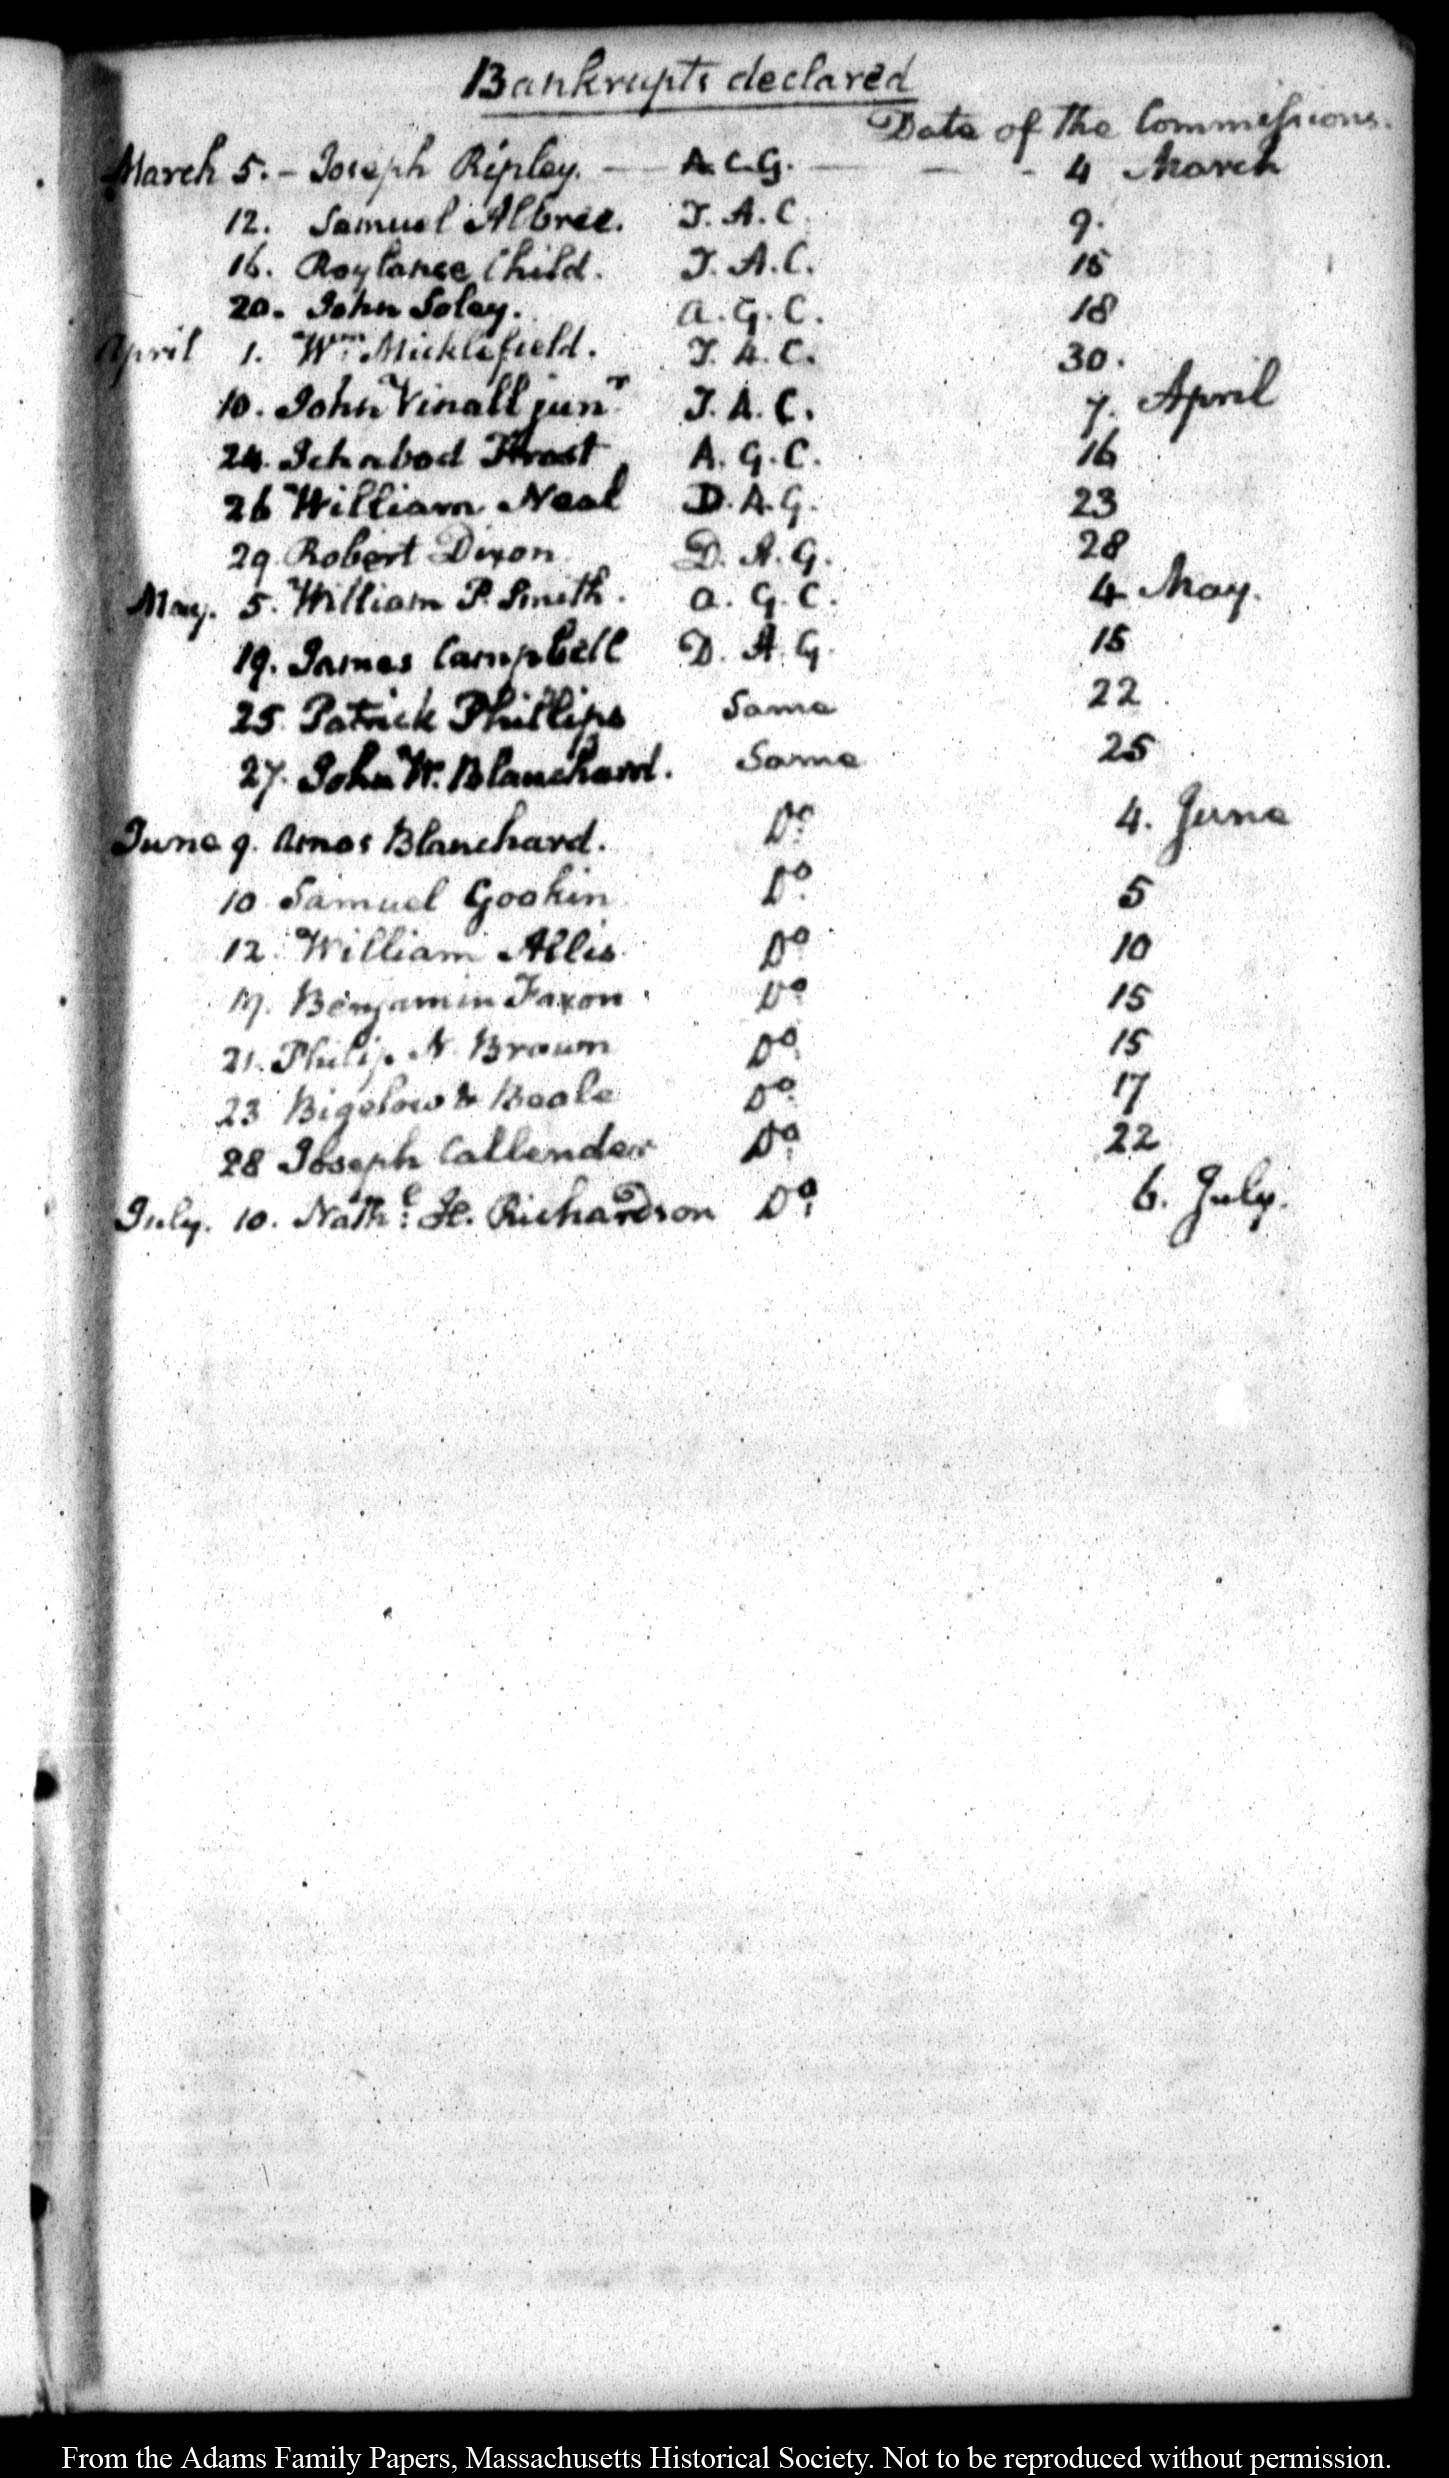 Bankrupts declared
Date of the Commissions.
March 5. - Joseph Ripley. — A. C. G. — — - 4 March
12. Samuel Albree. T. A. C. 9.
16. Roylance Child. T. A. C. 15
20. John Soley. A. G. C. 18
April 1. Wm. Micklefield. T. A. C. 30.
10. John Vinall junr. T. A. C. 7. April
24. Ichabod Frost A. G. C. 16
26 William Neal D. A. G. 23
29. Robert Dixon D. A. G. 28
May. 5. William P. Smith. A. G. C. 4 May.
19. James Campbell D. A. G. 15
25 Patrick Phillips Same 22
27. John W. Blanchard. Same 25
June 9. Amos Blanchard. Do. 4. June
10 Samuel Gookin Do. 5
12. William Allis Do. 10
17. Benjamin Faxon Do. 15
21. Philip N. Brown Do. 15
23 Bigelow & Beale Do. 17
28 Joseph Callender Do. 22
July. 10. Nathl: H. Richardson Do. 6. July.
From the Adams Family Papers, Massachusetts Historical Society. Not to be reproduced without permission.